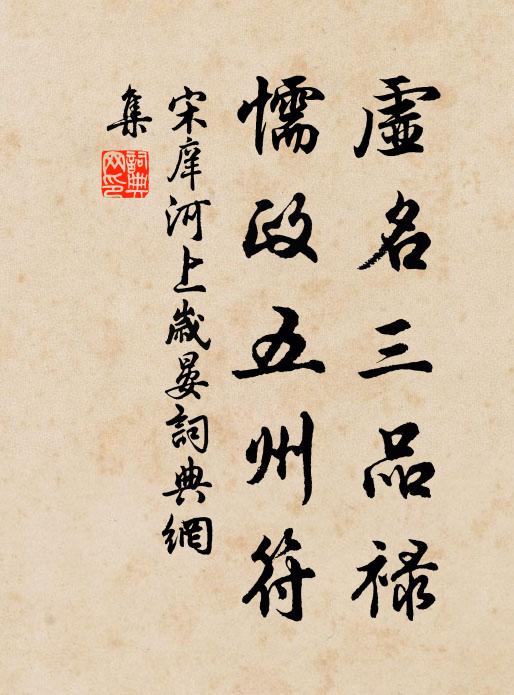 虛名三品祿
懦政五州符
宋庠河上歲晏詞典網
集
詞典
网印